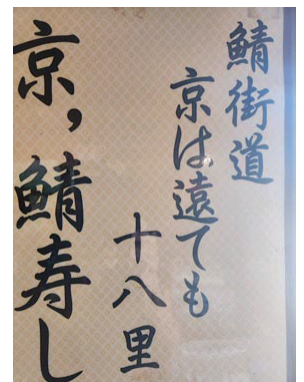 鯖街道
京は遠ても
十八里
京，鯖寿し